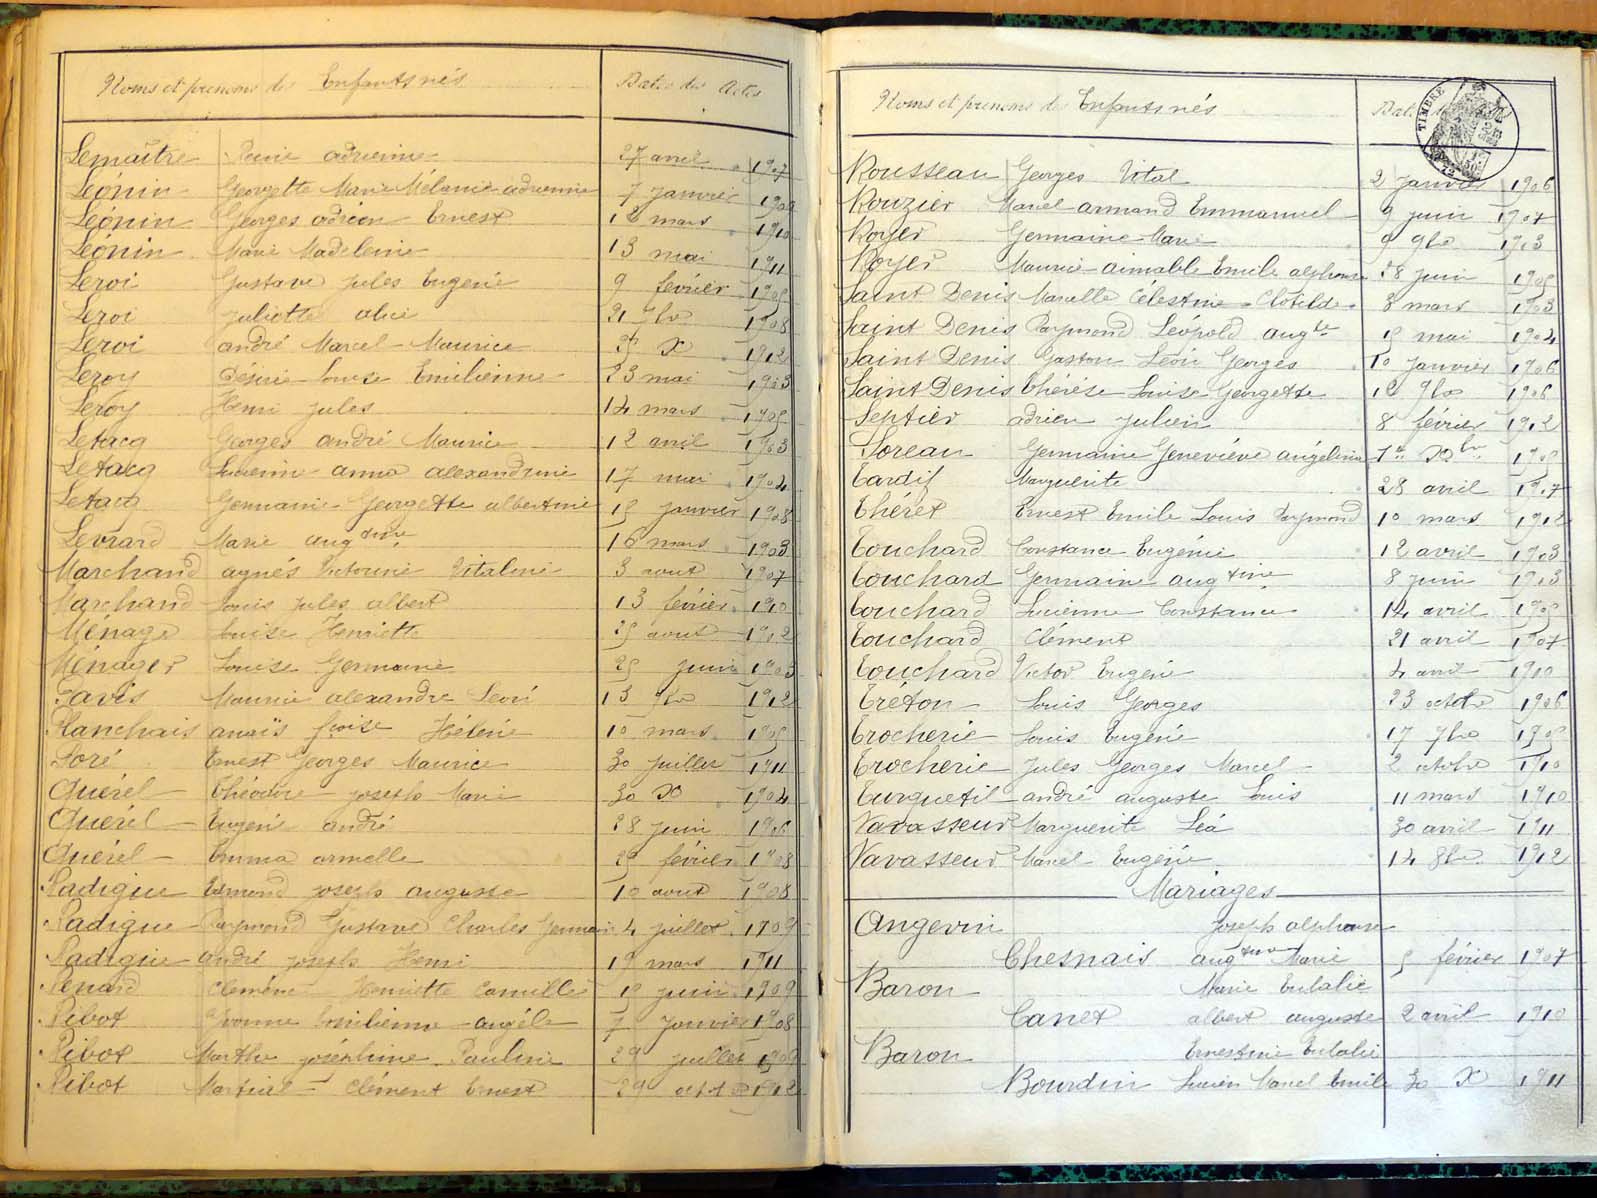 Noms et prénoms des Enfants nés Dates des Actes
Lemaître Renée adrienne 27 avril 1907
Léonin Georgette Marie Mélanie adrienne 7 janvier 1909
Léonin Georges adrien Ernest 12 mars 1910
Léonin Marie Madeleine 13 mai 1911
Leroi Gustave Jules Eugène 9 février 1905
Leroi Juliette alice 21 7bre 1908
Leroi andré Marcel Maurice X 1912
Leroy Désirée Louise Emilienne 23 mai 1903
Leroy Henri Jules 14 mars 1905
Letacq Georges andré Maurice 12 avril 1903
Letacq Lucienne anna alexandrine 17 mai 1904
Letacq Germaine Georgette albertine 15 janvier 1908
Levrard Marie augtine 16 mars 1903
Marchand agnés Victorine Vitaline 3 aout 1907
Marchand Louis Jules albert 13 février 1910
Ménage Louise Henriette 25 aout 1912
Ménager Louise Germaine 25 juin 1903
Pavis Maurice alexandre Léon 13 9bre 1912
Planchais anaïs fçoise Hélène 10 mars 1905
Poré Ernest Georges Maurice 30 juillet 1911
Quérel Théodore joseph Marie 30 X 1904
Quérel Eugène andré 28 juin 1906
Quérel Emma armelle 29 février 1908
Radigue Edmond joseph auguste 10 aout 1908
Radigue Raymond Gustave Charles Germain 4 juillet 1909
Radigue andré joseph Henri 19 mars 1911
Renard Clémence Henriette Camille 15 juin 1909
Ribot Yvonne Emilienne angèle 7 janvier 1908
Ribot Marthe joséphine Pauline 29 juillet 1909
Ribot Martial Clément Ernest 29 octobre 1912
Noms et prénoms des Enfants nés
TIMBRE
Rousseau Georges Vital 2 janvier 1906
Rouzier Marcel armand Emmanuel 9 juin 1907
Royer Germaine Marie 9 9bre 1903
Royer Maurice aimable Emile alphonse 28 juin 1905
Saint Denis Marcelle Célestine Clotilde 8 mars 1903
Saint Denis Raymond Léopold augte 15 mai 1904
Saint Denis Gaston Léon Georges 10 janvier 1906
Saint Denis Thérèse Louise Georgette 12 9bre 1906
Septier adrien Julien 8 février 1912
Soreau Germaine Geneviève angéline 1er Xbre 1905
Tardif Marguerite 28 avril 1907
Théret Ernest Emile Louis Raymond 10 mars 1912
Touchard Constance Eugénie 12 avril 1903
Touchard Germaine augtine 8 juin 1903
Touchard Lucienne Constance 14 avril 1905
Touchard Clément 21 avril 1907
Touchard Victor Eugène 4 avril 1910
Tréton Louis Georges 23 octobre 1906
Trocherie Louis Eugène 17 9bre 1908
Trocherie Jules Georges Marcel 2 octobre 1910
Turquetil andré auguste Louis 11 mars 1910
Vavasseur Marguerite Léa 30 avril 1911
Vavasseur Marcel Eugène 14 8bre 1912
Mariages
Angevin Joseph alphonse
Chesnais augtine Marie 5 février 1907
Baron Marie Eulalie
Canet albert auguste 2 avril 1910
Baron Ernestine Eulalie
Bourdin Lucien Marcel Emile 30 X 1911